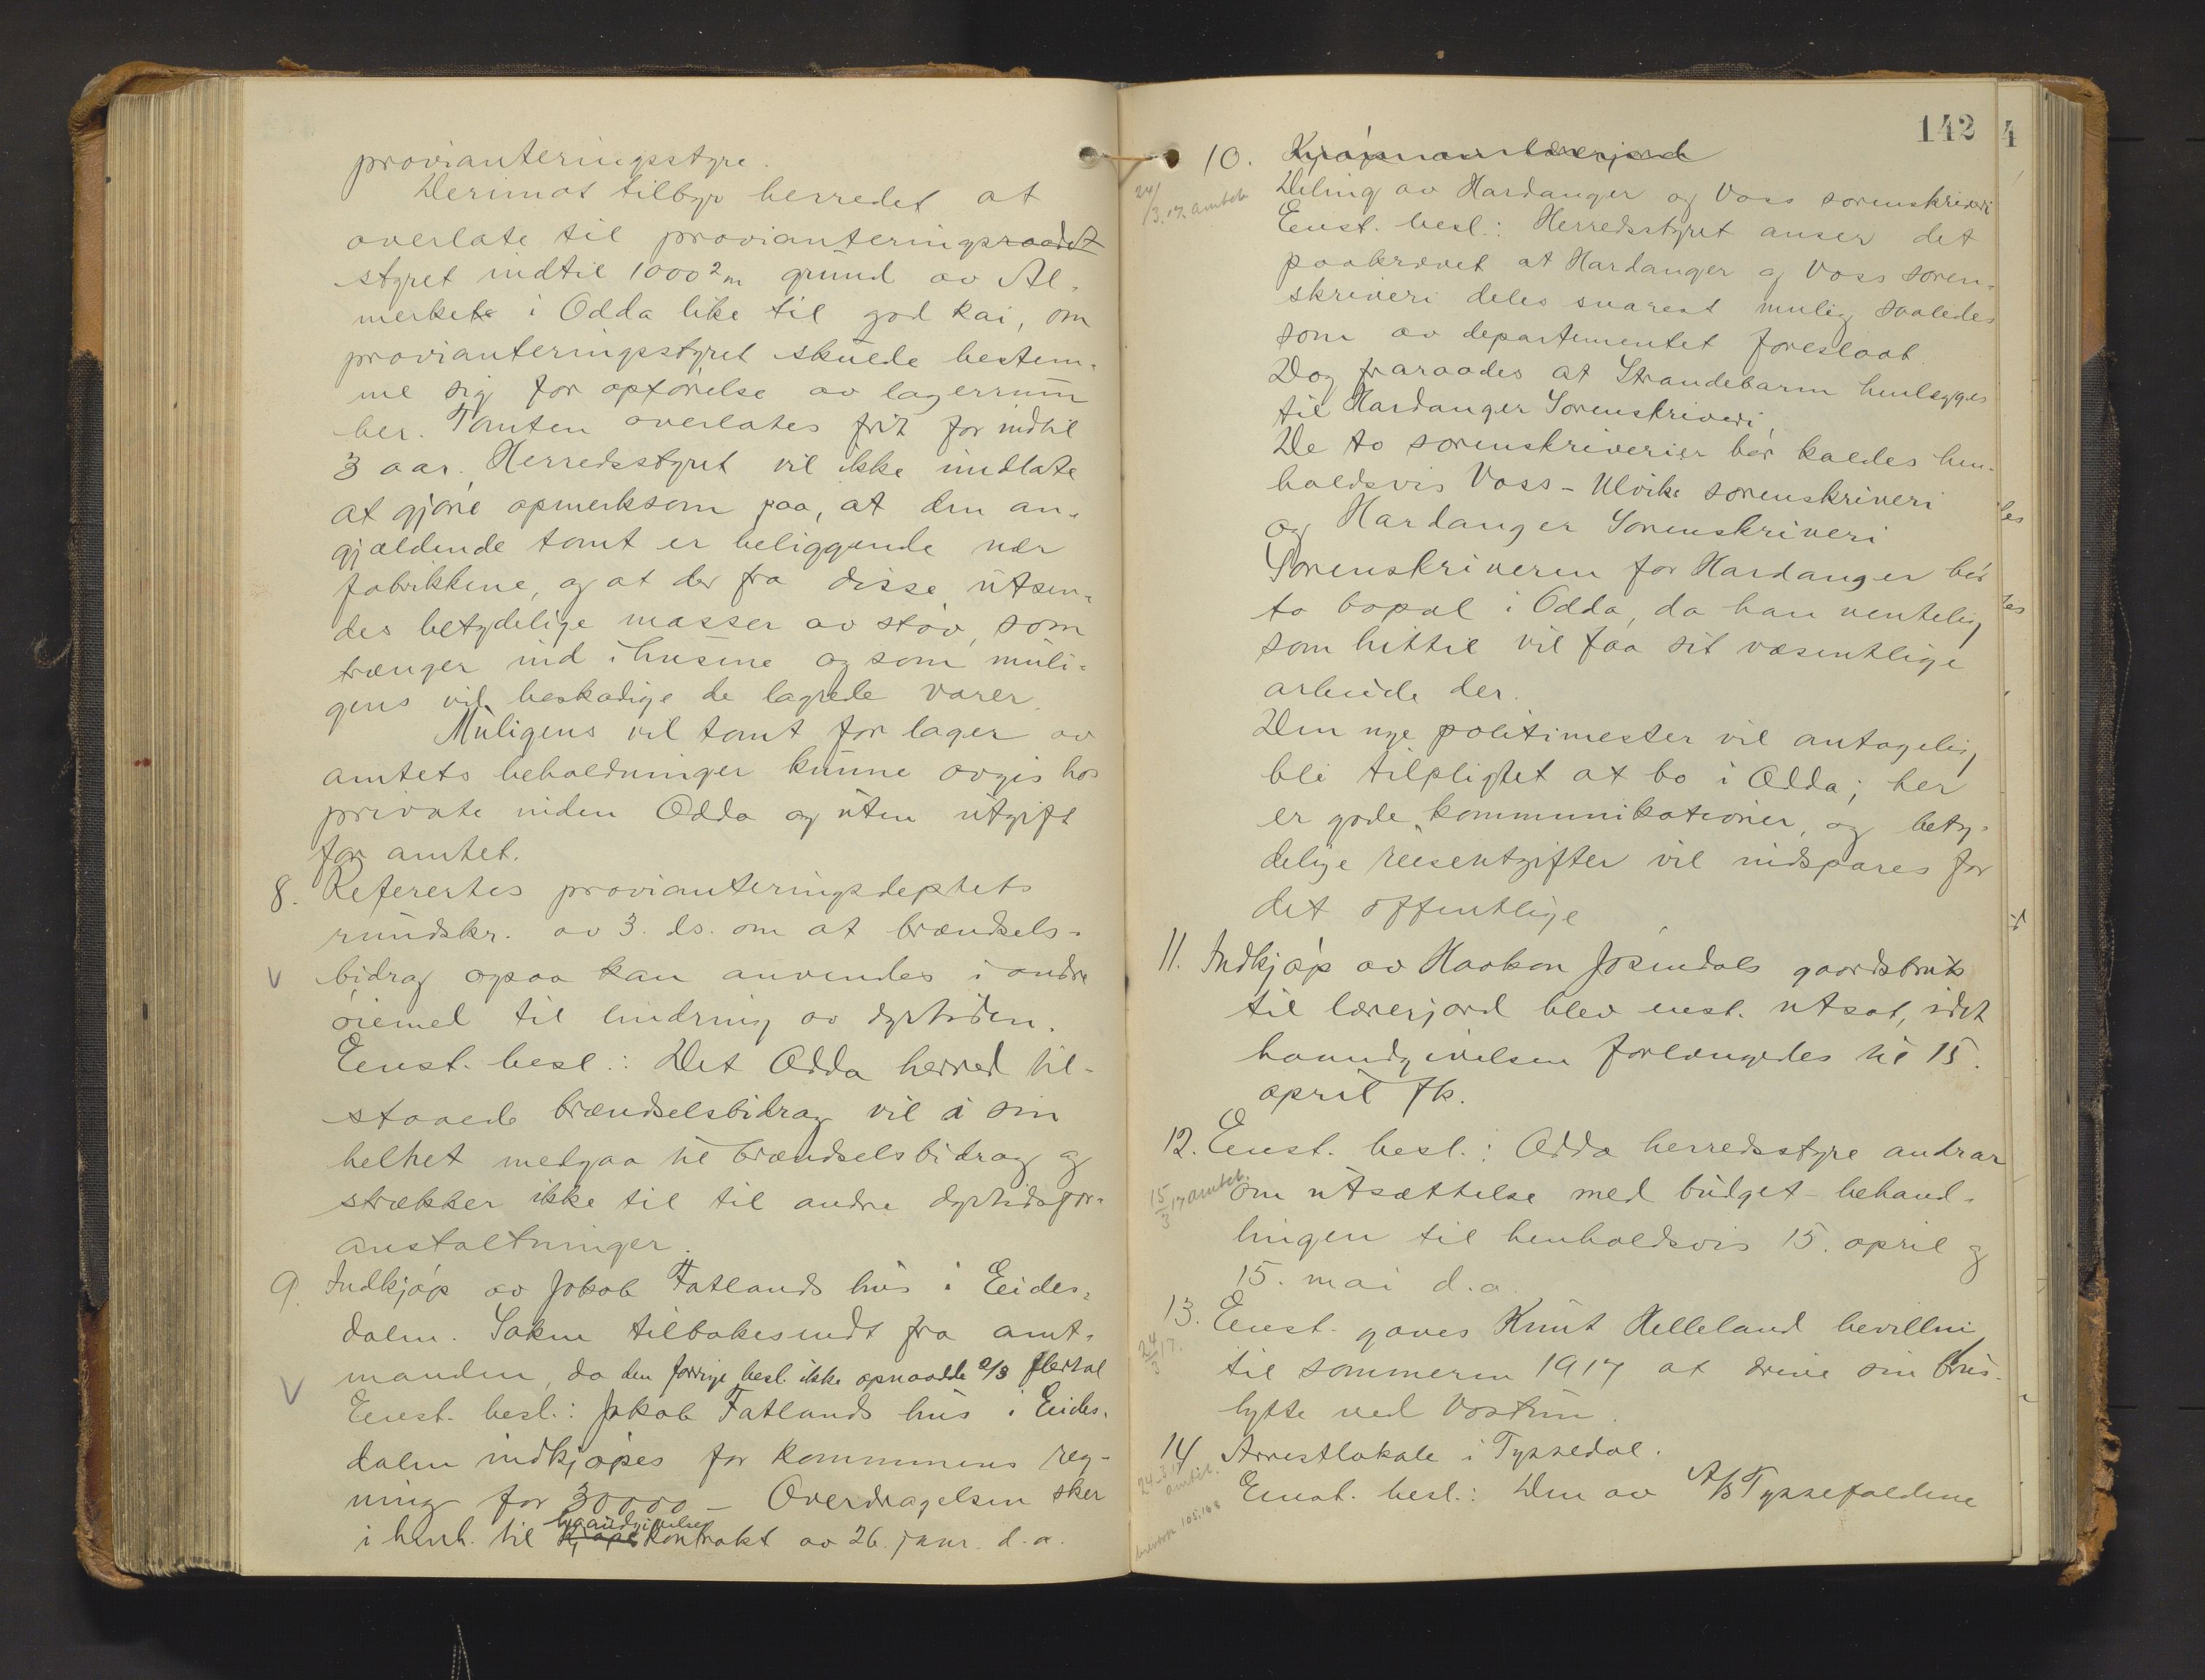 provianteringsstyre.
Derimot tilbyr herredet at
overlate til provianteringsraadet
styret indtil 1000 2m grund av Al-
merkets i Odda like til god kai, om
provianteringsstyret skulde bestem-
me sig for opførelse av lagerrum
her. Tomten overlates frit for indtil
3 aar. Herredsstyret vil ikke undlate
at gjøre opmerksom paa, at den an-
gjældende tomt er beliggende nær
fabrikkene, og at der fra disse utsen-
des betydelige masser av støv, som
trænger ind i husene og som muli-
gens vil beskadige de lagrede varer.
Muligens vil tomt for lager av
amtets beholdninger kunne avgis hos
private inden Odda og uten utgift
for amtet.
8. Refereres provianteringsdeptets
rundskr. av 3. ds. om at brændsels-
V bidrag ogsaa kan anvendes i andre
øiemed til lindring av dyrtiden.
Eenst. besl.: Det Odda herred til-
staaede brændselsbidrag vil i sin
helhet medgaa til brændselsbidrag og
strækker ikke til til andre dyrtidsfor-
anstaltninger.
9. Indkjøp av Jakob Fatlands hus i Eides-
dalen. Saken tilbakesendt fra amt-
manden, da den forrige besl. ikke opnaadde 2/3 flertal
V Eenst. besl.: Jakob Fatlands hus i Eides-
dalen indkjøpes for kommunens reg-
ning for 30000 - Overdragelsen sker
haandgivelses
i henh. til kjøpe kontrakt av 26. janr. d. a.
142
4
10. Kjøp av lærerjord
24/3.17. amtet
Deling av Hardanger og Voss sorenskriveri
Eenst. besl.: Herredsstyret anser det
paakrævet at Hardanger og Voss soren-
skriveri deles snarest mulig saaledes
som av departementet foreslaat.
Dog fraraades at Strandebarm henlægges
til Hardanger Sorenskriveri,
De to sorenskriverier bør kaldes hen-
holdsvis Voss - Ulvike sorenskriveri
og Hardanger Sorenskriveri
Sorenskriveren for Hardanger bør
ta bopæl i Odda, da han ventelig
som hittil vil faa sit væsentlige
arbeide der.
Den nye politimester vil antagelig
bli tilpligtet at bo i Odda; her
er gode kommunikationer, og bety-
delige reiseutgifter vil indspares for
det offentlige
11. Indkjøp av Haakon Jøsendals gaardsbruk
til lærerjord blev enst. utsat, idet
haandgivelsen forlængedes til 15.
april fk.
12. Eenst. besl.: Odda herredsstyre andrar
15/3 17 amtet om utsættelse med budget-behand-
lingen til henholdsvis 15. april og
15. mai d. a.
13. Eenst. gaves Knut Helleland bevillni
24/3 17. til sommeren 1917 at drive sin brus-
hytte ved Vostun.
14 Arrestlokale i Tyssedal.
24-3.17 amtet. Eenst. besl.: Den av A/S Tyssefaldene
brevbok 105.168